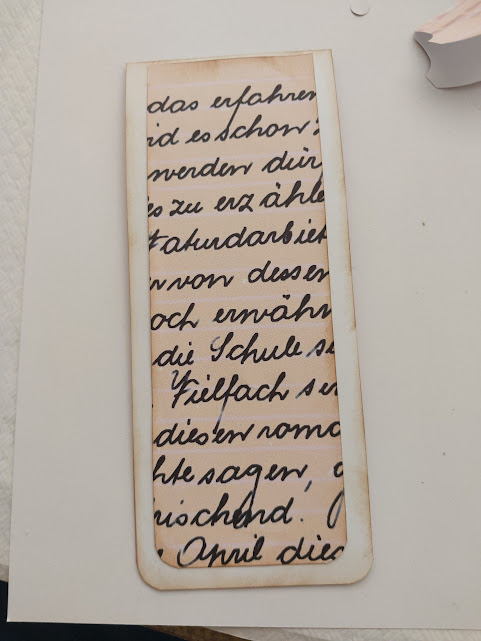 das erfahren
id es schon
werden dür
es zu erzähle
aturdarbiet
von dessen
och erwähn
die Schule se
Vielfach sei
diesen roma
hte sagen,
rischend.
April dies